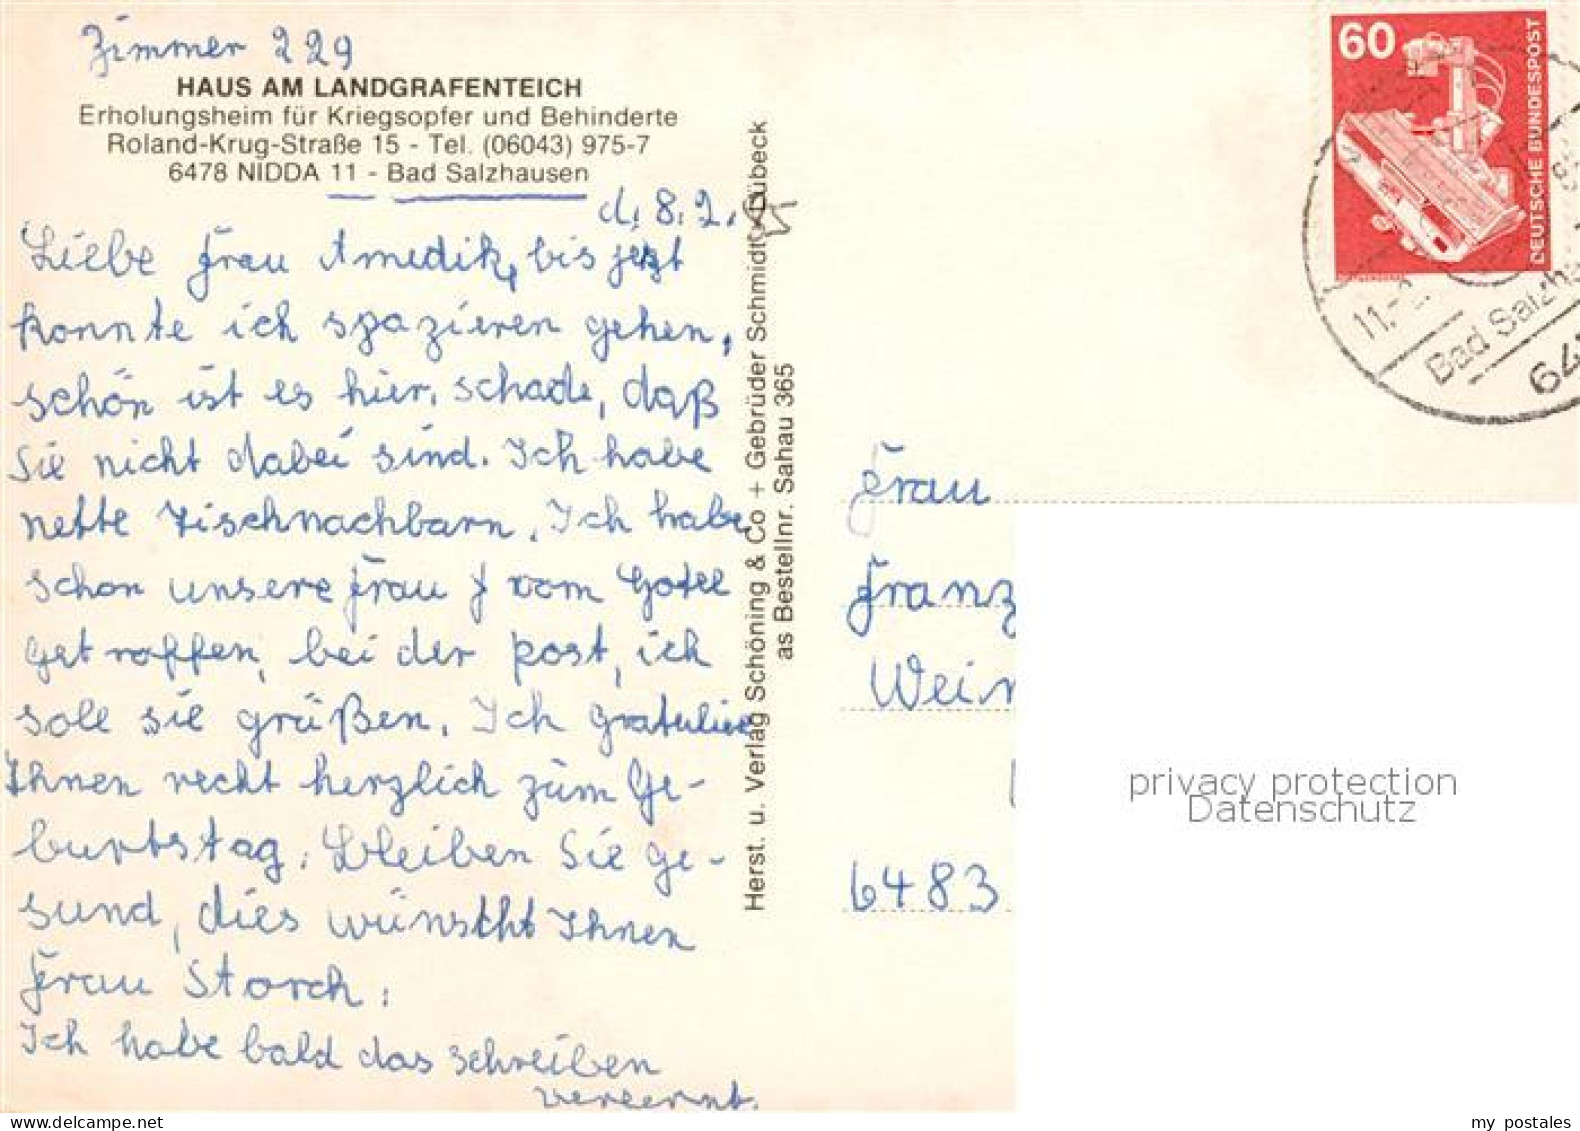 Zimmer 229
HAUS AM LANDGRAFENTEICH
Erholungsheim für Kriegsopfer und Behinderte
Roland-Krug-Straße 15 - Tel. (06043) 975-7
6478 NIDDA 11 - Bad Salzhausen
d. 8. 2.
Liebe Frau Amedik, bis jetzt
konnte ich spazieren gehen,
schön ist es hier, schade, daß
Sie nicht dabei sind. Ich habe
nette Tischnachbarn. Ich habe
schon unsere Frau J vom Hotel
getroffen, bei der Post, ich
soll sie grüßen. Ich gratuliere
Ihnen recht herzlich zum Ge-
burtstag. Bleiben Sie ge-
sund, dies wünscht Ihnen
Frau Storch.
Ich habe bald das schreiben
verlernt.
Herst. u. Verlag Schöning & Co + Gebrüder Schmidt, Lübeck
as Bestellnr. Sahau 365
60
DEUTSCHE BUNDESPOST
11.-2.
Bad Salzha
647
Frau
Franz
Wein
6483
privacy protection
Datenschutz
my postales